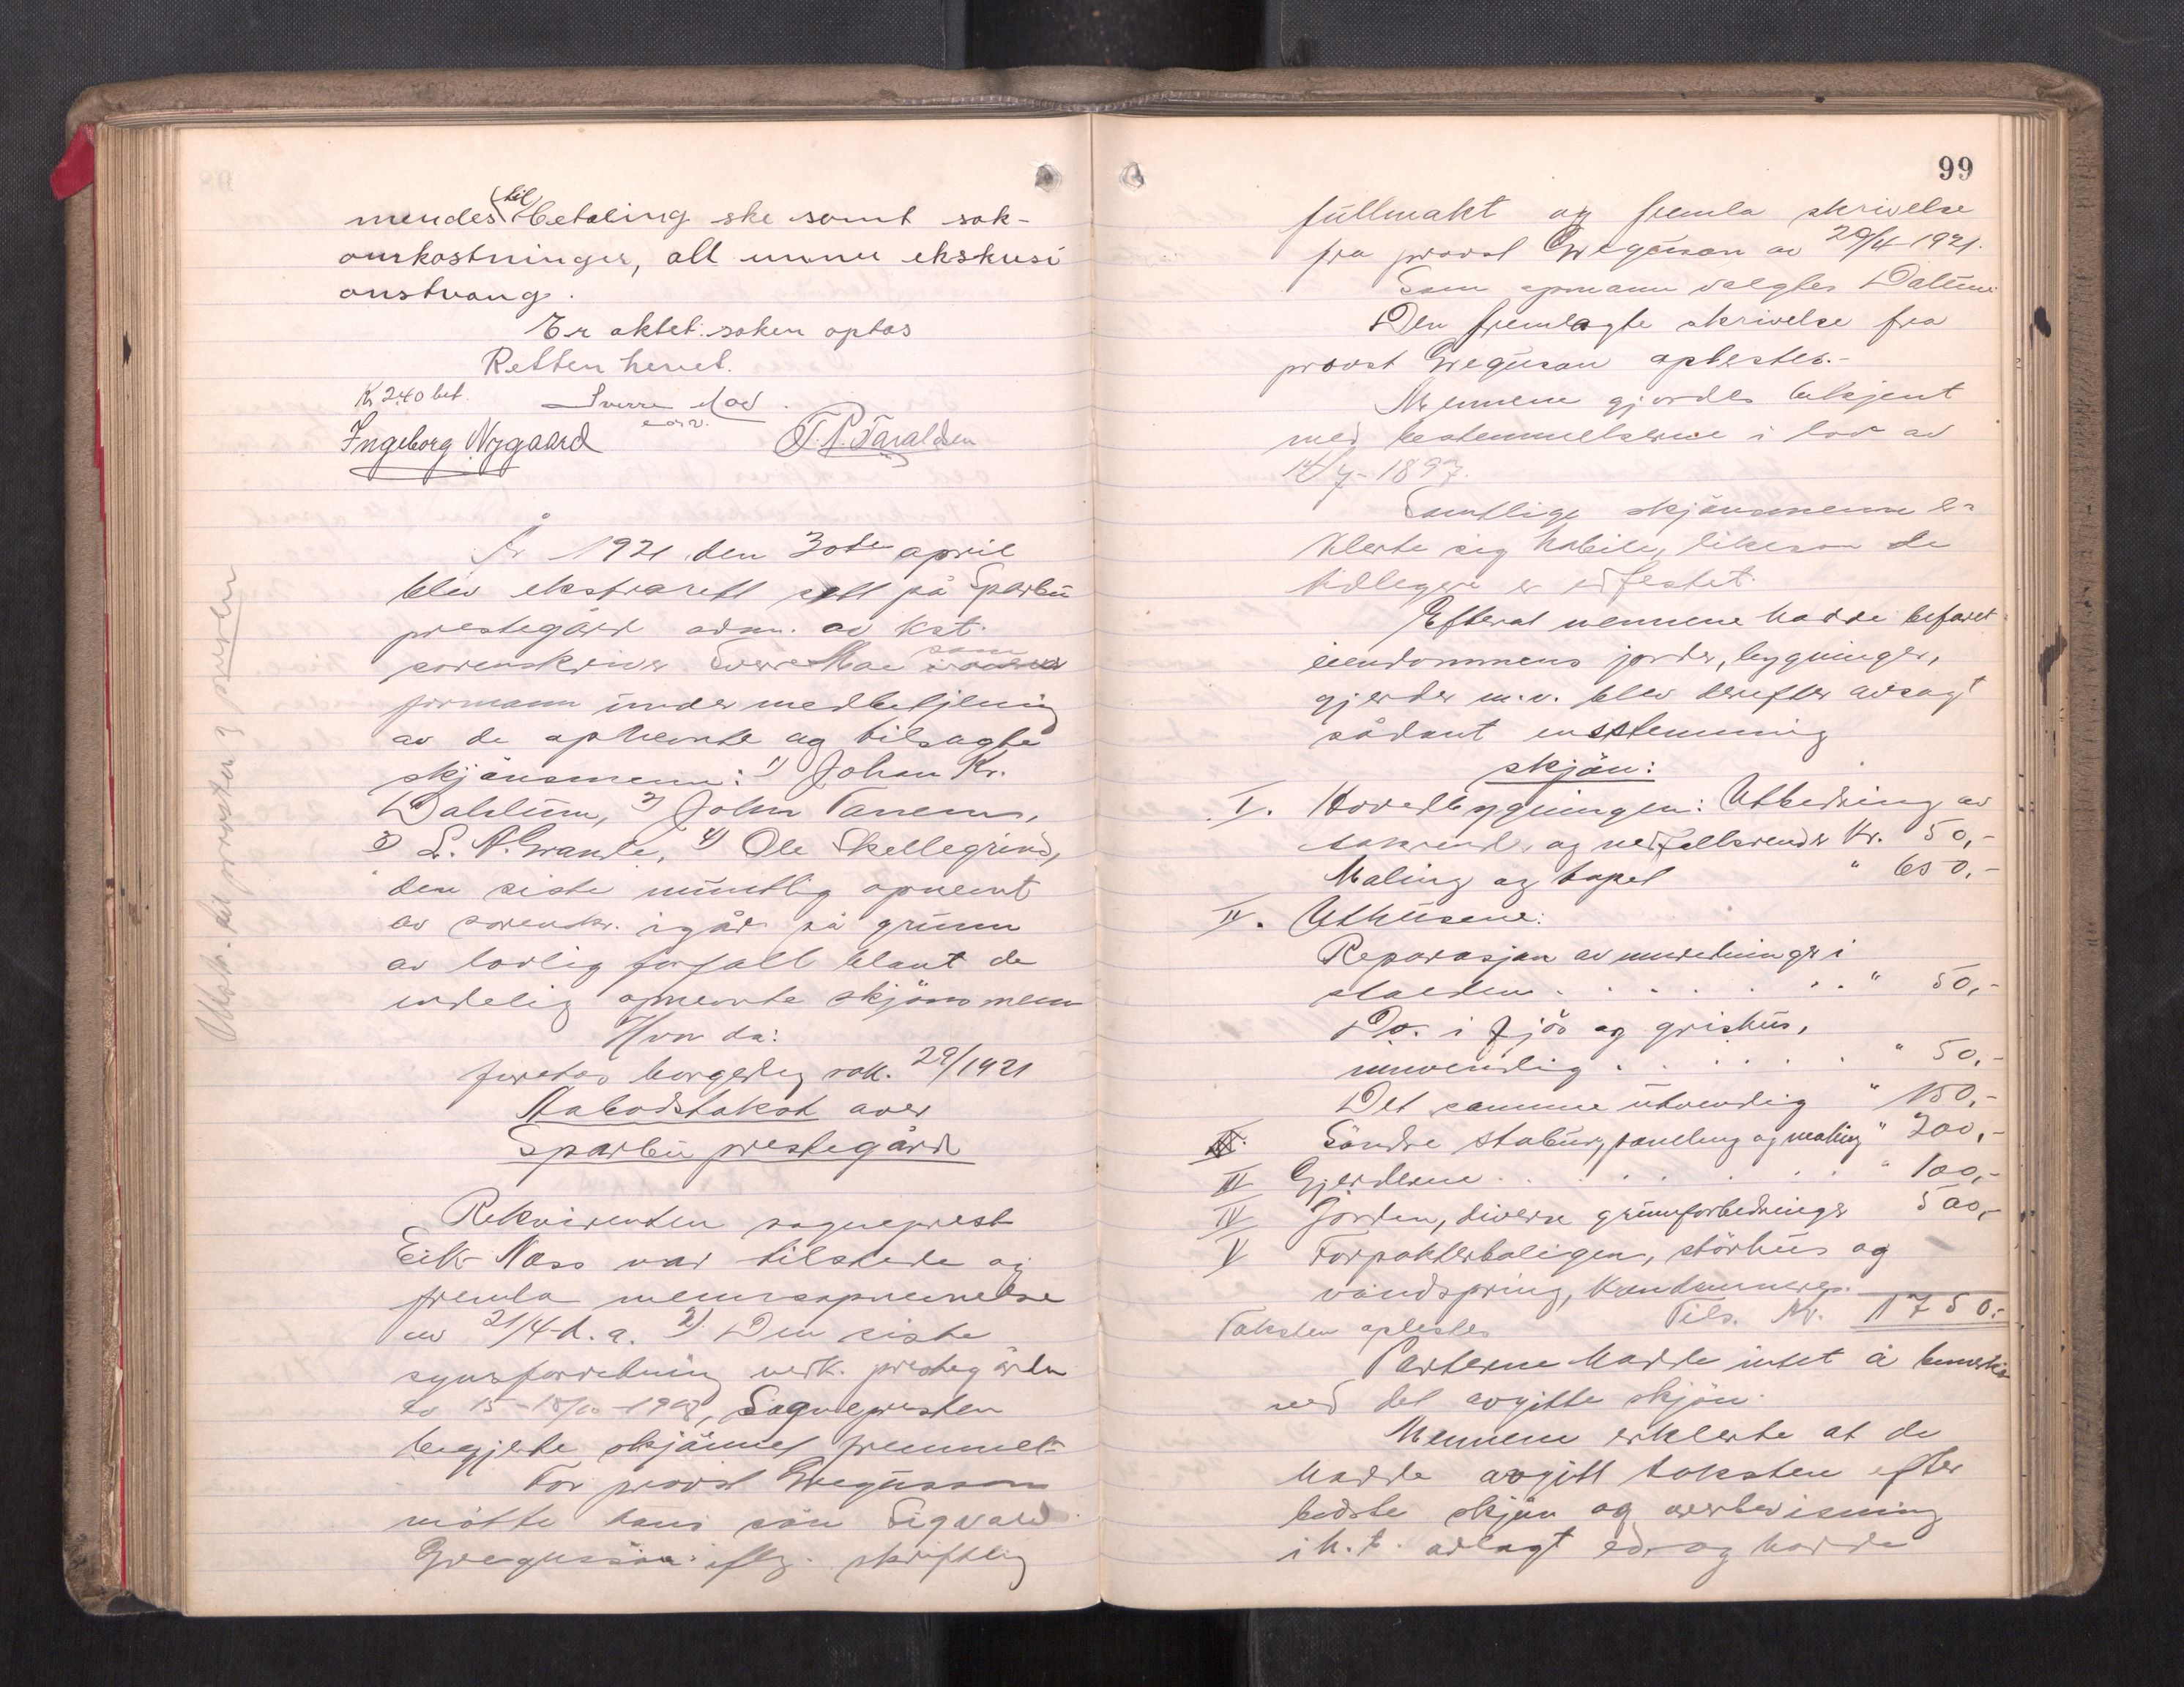 mendes til betaling ske samt sak-
omkostninger, alt under ekskusi
onstvang.
Er aktet: saken optas
Retten hevet.
Kr 2.40 bet. Sverre Moe
Ingeborg Nygaard T. P. Taraldsen
År 1921 den 30de april
blev ekstrarett satt på Sparbu
prestegård adm. av kst.
sorenskriver Sverre Moe som
formann under medbetjening
av de opnevnte og tilsagte
skjönsmenn: 1) Johan Kr.
Dahlum, 2) John Tanem,
3) L. N. Grande, 4) Ole Skellegrind,
den siste muntlig opnevnt
av sorenskr. igår på grunn
av lovlig forfall blant de
endelig opnevnte skjönsmenn
Hvor da:
foretas borgerlig sak. 29/1921
Aabodstakst over
Sparbu prestegård
Rekvirenten sogneprest
Eik-Næss var tilstede og
fremla mennsopnevnelse
av 21/4 d. a. 2) Den siste
synsforretning vedk. prestegården
av 15-18/10-1908, Sognepresten
begjerte skjönnet fremmet
For provst Gregusson
mötte hans sön Sigvald
Gregusson iflg. skriftlig
Utskr. til provsten og presten
99
fullmakt og fremla skrivelse
fra provst Gregusson av 29/4-1921.
Som opmann valgtes Dalum
Den fremlagte skrivelse fra
provst Gregusson oplestes.-
Mennene gjordes bekjent
med bestemmelserne i lov av
14/7-1897.
Samtlige skjönsmenn er-
klerte sig habile, likesom de
tidligere er edfestet.
Efterat mennene hadde befaret
eiendommens jorder, bygninger,
gjerder m.v. blev derefter avsagt
sådant enstemmig
skjön:
I. Hovedbygningen: Utbedring av
takrender og nedfallsrender Kr. 50,-
Maling og tapet " 650,-
II. Uthusene:
Reparasjon av innredninger i
stalden . . . . . . . " 50,-
Do. i fjös og grishus,
innvendig . . . . . . " 50,-
Det samme utvendig " 150,-
Söndre stabur, paneling og maling " 200,-
III Gjerderne . . . . . . " 100,-
IV Jorden, diverse grunnforbedringer 500,-
V Forpakterboligen, störhus og
vandspring, 
Taksten oplestes Tils. Kr. 1750.-
Parterne hadde intet å bemerke
ved det avgitte skjön.
Mennene erklerte at de
hadde avgitt taksten efter
bedste skjön og overbevisning
i h. t. avlagt ed og hadde